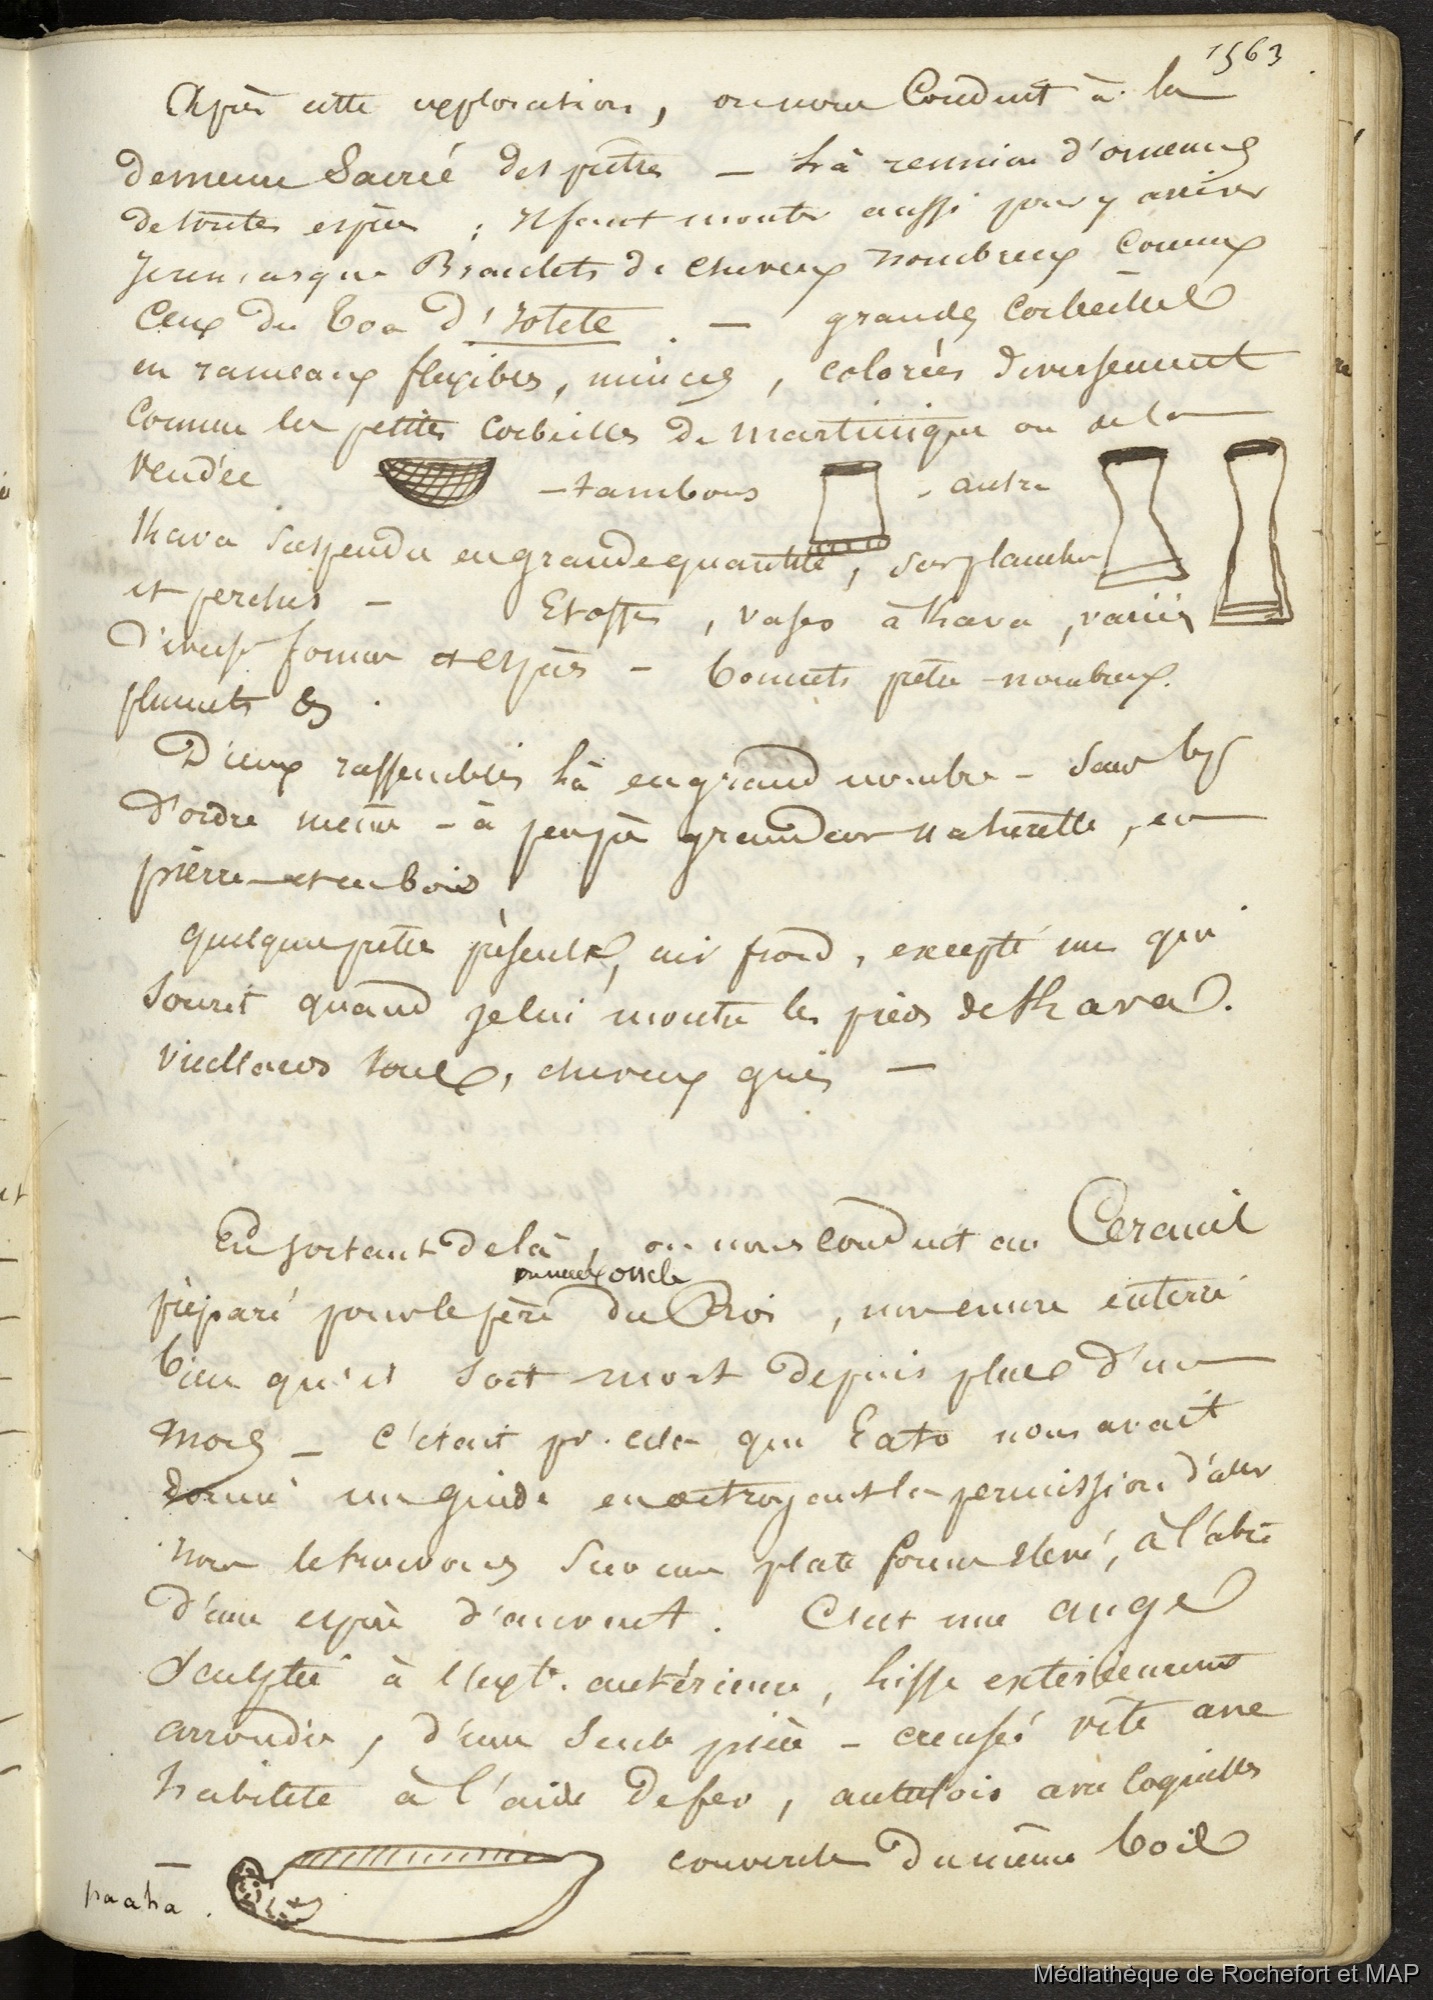 1563
Après cette exploration, on nous Conduit à la
demeure Sacrée des prêtres — là réunion d'ornements
de toutes espèces ; Il faut monter aussi pour y arriver
Je remarque Bracelets de cheveux nombreux Comme
Ceux du Toa d'Hotete . — grandes Corbeilles
en rameaux flexibles, minces, colorées diversement
Comme les petites Corbeilles de Martinique ou de la
Vendée — tambours - autre
Kava suspendu en grande quantité, sur planches
et perches — Etoffes, vases à Kava, variés
Diverses formes et espèces — bonnets prêtres nombreux.
plumets &
Dieux rassemblés là en grand nombre — sans bcp
d'ordre même — à peu près grandeur naturelle, en
pierre et en bois
quelques prêtres présents, air froid, excepté un qui
Sourit quand je lui montre les pieds de Kava.
Vieillards tous, cheveux gris —
En sortant de là, on nous conduit au Cercueil
ou mieux oncle
préparé pour le père du Roi, non encore enterré
bien qu'il soit mort depuis plus d'un
mois — C'était pr. cela que Eato nous avait
donné un guide en octroyant la permission d'aller
nous le trouvons sur une plate forme élevée, à l'abri
d'une espèce d'auvent. C'est une auge
Sculptée à l'extr. antérieure, lisse extérieurement
arrondie, d'une seule pièce — creusée vite avec
habileté à l'aide de fer, autrefois avec coquilles
— couvercle du même bois
paaha .